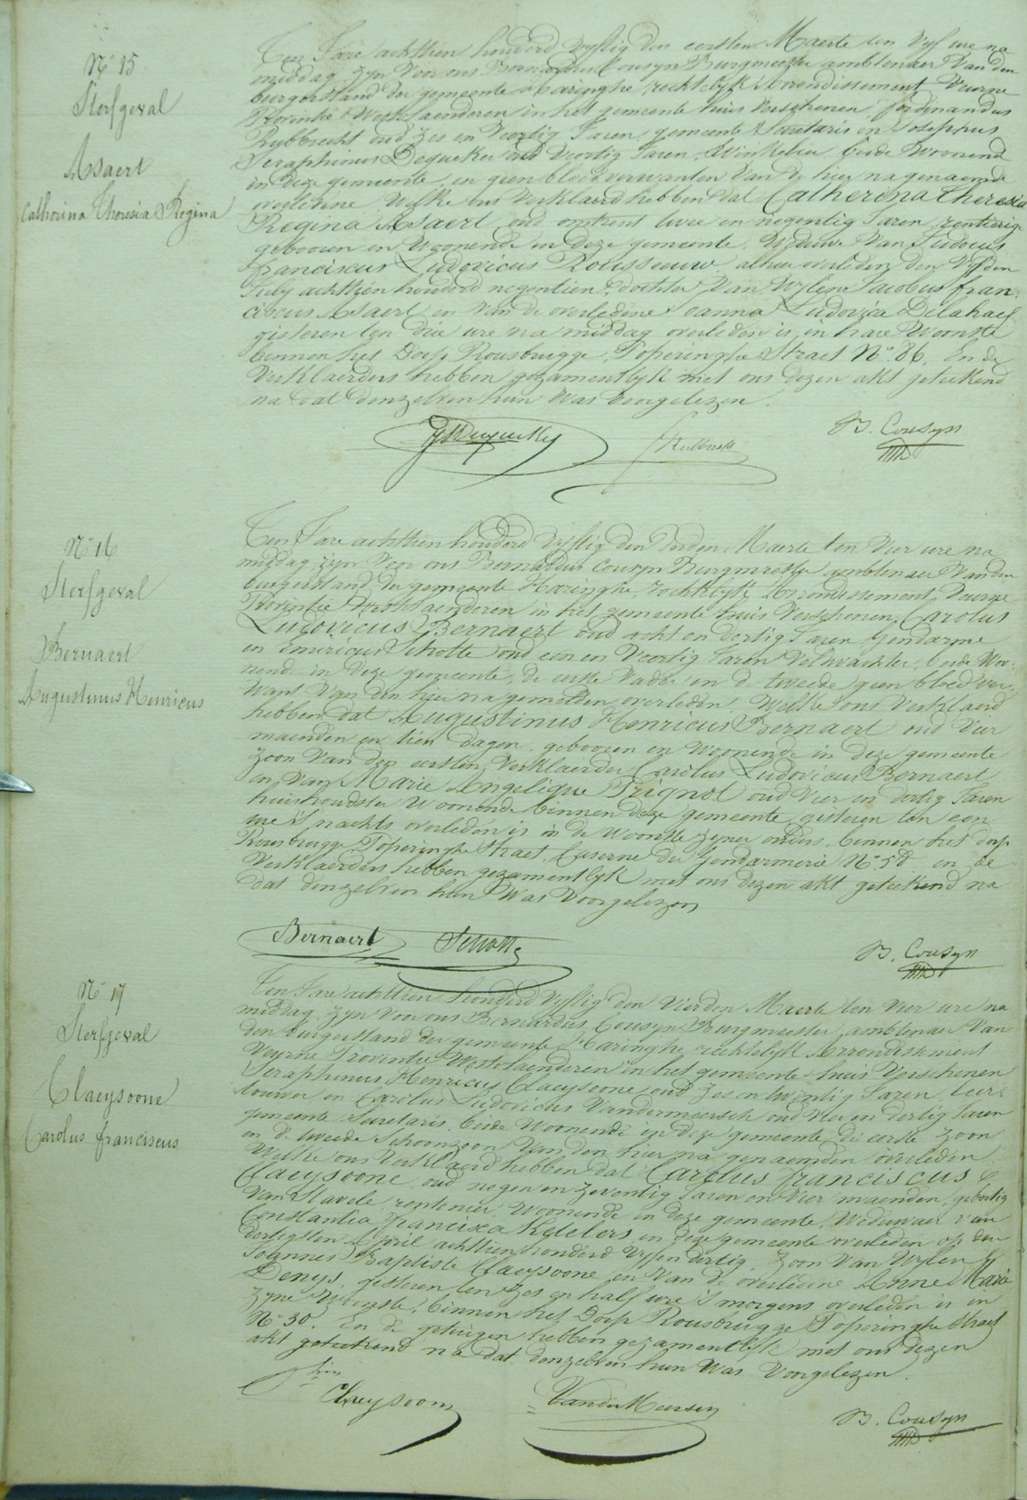 N° 15
Sterfgeval
Asaert
Catharina Theresia Regina
Ten Jare achttien honderd vyftig den eersten Maerte ten vyf ure na
middag, zyn voor ons Bernardus Cousyn Burgmeester ambtenaer van den
burgerstand der gemeente Haringhe, rechtelyk Arrondissement Veurne
Provintie Westvlaenderen in het gemeente huis verschenen Ferdinandus
Rybbrecht, oud zes en veertig Jaren, gemeente Secretaris en Josephus
Seraphinus Dequeker oud veertig Jaren, Winkelier beide Woonend
in deze gemeente, en geen bloedverwanten van de hier nagenaemde
overledene, Welke ons verklaerd hebben dat Catherina Theresia
Regina Asaert, oud omtrent twee en negentig Jaren, rentierige
gebooren en Woonende in deze gemeente, Weduwe van Judocus
Franciscus Ludovicus Rousseeuw, alhier overleden den vyfden
July achttien honderd negentien, dochter van wylen Jacobus Fran-
ciscus Asaert en van de overledene Joanna Ludovica Delahaey
gisteren ten drie ure na middag overleden is, in hare Woonste
binnen het Dorp Rousbrugge, Poperinghe Straet N° 86. En de
Verklaerders hebben gezamentlyk met ons dezen akt geteekend
na dat denzelven hun Was voorgelezen.
B. Cousyn
N° 16
Sterfgeval
Bernaert
Augustinus Henricus
Ten Jare achttien honderd vyftig den derden Maerte ten vier ure na
middag, zyn voor ons Bernardus Cousyn Burgmeester ambtenaer van den
burgerstand der gemeente Haringhe, rechtelyk Arrondissement Veurne
Provintie Westvlaenderen in het gemeente huis verschenen, Carolus
Ludovicus Bernaert oud acht en dertig Jaren Gendarme
en Emericus Schotte oud een en veertig Jaren Veldwachter, beide Woo-
nend in deze gemeente, de eerste Vader en de tweede geen bloedver-
want van den hier nagemelden overleden, Welke ons verklaerd
hebben dat Augustinus Henricus Bernaert oud vier
maenden en tien dagen, gebooren en Woonende in deze gemeente
zoon van den eersten Verklaerder Carolus Ludovicus Bernaert
en van Marie Angelique Prignot oud vier en dertig Jaren
huishoudster Woonende binnen deze gemeente, gisteren ten een
ure 's nachts overleden is in de Woonste zyner ouders, binnen het dorp
Rousbrugge Poperinghe Straet, Caserne der Gendarmerie N° 58 en de
Verklaerders hebben gezamentlyk met ons dezen akt geteekend na
dat denzelven hun Was voorgelezen
Bernaert Schotte
B. Cousyn
N° 17
Sterfgeval
Claeysoone
Carolus Franciscus
Ten Jare achttien honderd vyftig den vierden Maerte ten vier ure na
middag, zyn voor ons Bernardus Cousyn Burgmeester, ambtenaer van
den burgerstand der gemeente Haringhe, rechtelyk Arrondissement
Veurne Provintie Westvlaenderen in het gemeente huis verschenen
Seraphinus Henricus Claeysoone oud zes en twintig Jaren, leer-
touwer en Carolus Ludovicus Vandermeersch oud en dertig Jaren
gemeente Secretaris, beide Woonende in deze gemeente, de eerste zoon
en de tweede Schoonzoon van den hier na genaemden overleden
Welke ons verklaerd hebben dat Carolus Franciscus
Claeysoone, oud negen en zeventig Jaren en vier maenden, gebortig
van Stavele rentenier, Woonende in deze gemeente, Weduwaer van
Constantia Francisca Ketelers in deze gemeente overleden op den
dertigsten April achttien honderd vyf en dertig, zoon van wylen
Joannes Baptiste Claeysoone en van de overledene Anne Marie
Denys, gisteren ten zes en half ure 's morgens overleden is in
zyne Woonste, binnen het Dorp Rousbrugge Poperinghe Straet
N° 30. En de getuigen hebben gezamentlyk met ons dezen
akt geteekend na dat denzelven hun Was voorgelezen.
Claeysoone VanderMeersch
B. Cousyn